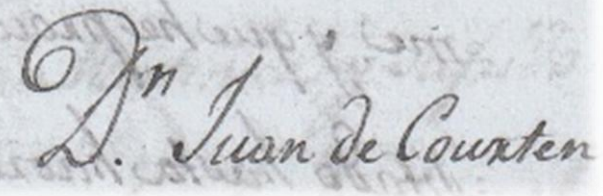 Dn. Juan de Courten